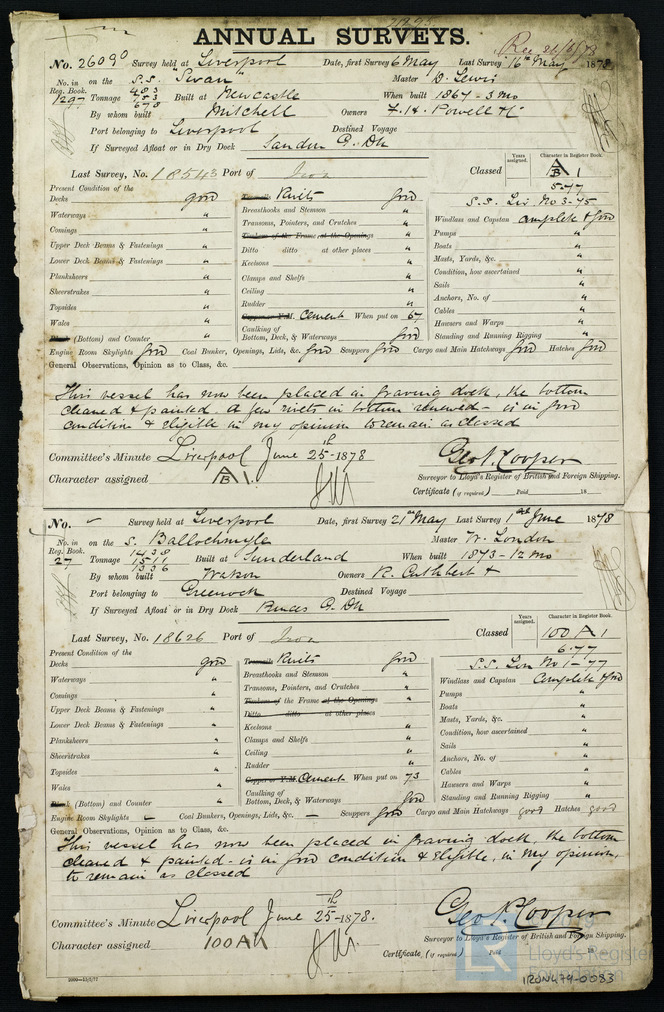 ANNUAL SURVEYS.
No. 26090 Survey held at Liverpool Date, first Survey 6 May Last Survey 16th May 1878
No. in Reg. Book. on the S.S. "Swan" Master D. Lewis
483
Tonnage 753 Built at Newcastle When built 1867 - 3 mo
678
By whom built Mitchell Owners F. H. Powell & Co
Port belonging to Liverpool Destined Voyage
If Surveyed Afloat or in Dry Dock Sandon G. Dk
Last Survey, No. 18543 Port of Iron Classed
Years assigned. Character in Register Book.
A B 1
5-77
S.S. Liv. No 3-75
Present Condition of the
Decks good
Waterways "
Comings "
Upper Deck Beams & Fastenings "
Lower Deck Beams & Fastenings "
Planksheers "
Sheerstrakes "
Topsides "
Wales "
(Bottom) and Counter "
Treenails Rivits good
Breasthooks and Stemson "
Transoms, Pointers, and Crutches "
Timbers of the Frame at the Openings "
Ditto ditto at other places "
Keelsons "
Clamps and Shelfs "
Ceiling "
Rudder "
Copper or Y.M. Cement When put on 67
Caulking of
Bottom, Deck, & Waterways good
Windlass and Capstan Complete & good
Pumps "
Boats "
Masts, Yards, &c. "
Condition, how ascertained "
Sails "
Anchors, No. of "
Cables "
Hawsers and Warps "
Standing and Running Rigging "
Engine Room Skylights good Coal Bunker, Openings, Lids, &c. good Scuppers good Cargo and Main Hatchways good Hatches good
General Observations, Opinion as to Class, &c.
This vessel has now been placed in graving dock, the bottom
cleaned & painted. A few rivets in bottom renewed - is in good
condition & eligible in my opinion to remain as classed
Committee's Minute Liverpool June 25th 1878
Character assigned A B 1.
Geo. P. Cooper
Surveyor to Lloyd's Register of British and Foreign Shipping.
Certificate (if required) Paid 18
No. - Survey held at Liverpool Date, first Survey 21st May Last Survey 1st June 1878
No. in Reg. Book. 27 on the S. Ballochmyle Master W. London
1438
Tonnage 1511 Built at Sunderland When built 1873 - 12 mo
1336
By whom built Watson Owners R. Cuthbert &
Port belonging to Greenock Destined Voyage
If Surveyed Afloat or in Dry Dock Princes G. Dk
Last Survey, No. 18626 Port of Iron Classed
Years assigned. Character in Register Book.
100 A 1
6.77
S.S. Lon No 1-77
Present Condition of the
Decks good
Waterways "
Comings "
Upper Deck Beams & Fastenings "
Lower Deck Beams & Fastenings "
Planksheers "
Sheerstrakes "
Topsides "
Wales "
(Bottom) and Counter "
Treenails Rivits good
Breasthooks and Stemson "
Transoms, Pointers, and Crutches "
Timbers of the Frame at the Openings "
Ditto ditto at other places
Keelsons "
Clamps and Shelfs "
Ceiling "
Rudder "
Copper or Y.M. Cement When put on 73
Caulking of
Bottom, Deck, & Waterways good
Windlass and Capstan Complete & good
Pumps "
Boats "
Masts, Yards, &c. "
Condition, how ascertained "
Sails "
Anchors, No. of "
Cables "
Hawsers and Warps "
Standing and Running Rigging "
Engine Room Skylights - Coal Bunkers, Openings, Lids, &c. - Scuppers good Cargo and Main Hatchways good Hatches good
General Observations, Opinion as to Class, &c.
This vessel has now been placed in graving dock, the bottom
cleaned & painted - is in good condition & eligible, in my opinion,
to remain as classed
Committee's Minute Liverpool June 25th - 1878.
Character assigned 100 A 1
Geo. P. Cooper
Surveyor to Lloyd's Register of British and Foreign Shipping.
Certificate, (if required) Paid 18
Lloyd's Register
Foundation
IRON479-0083